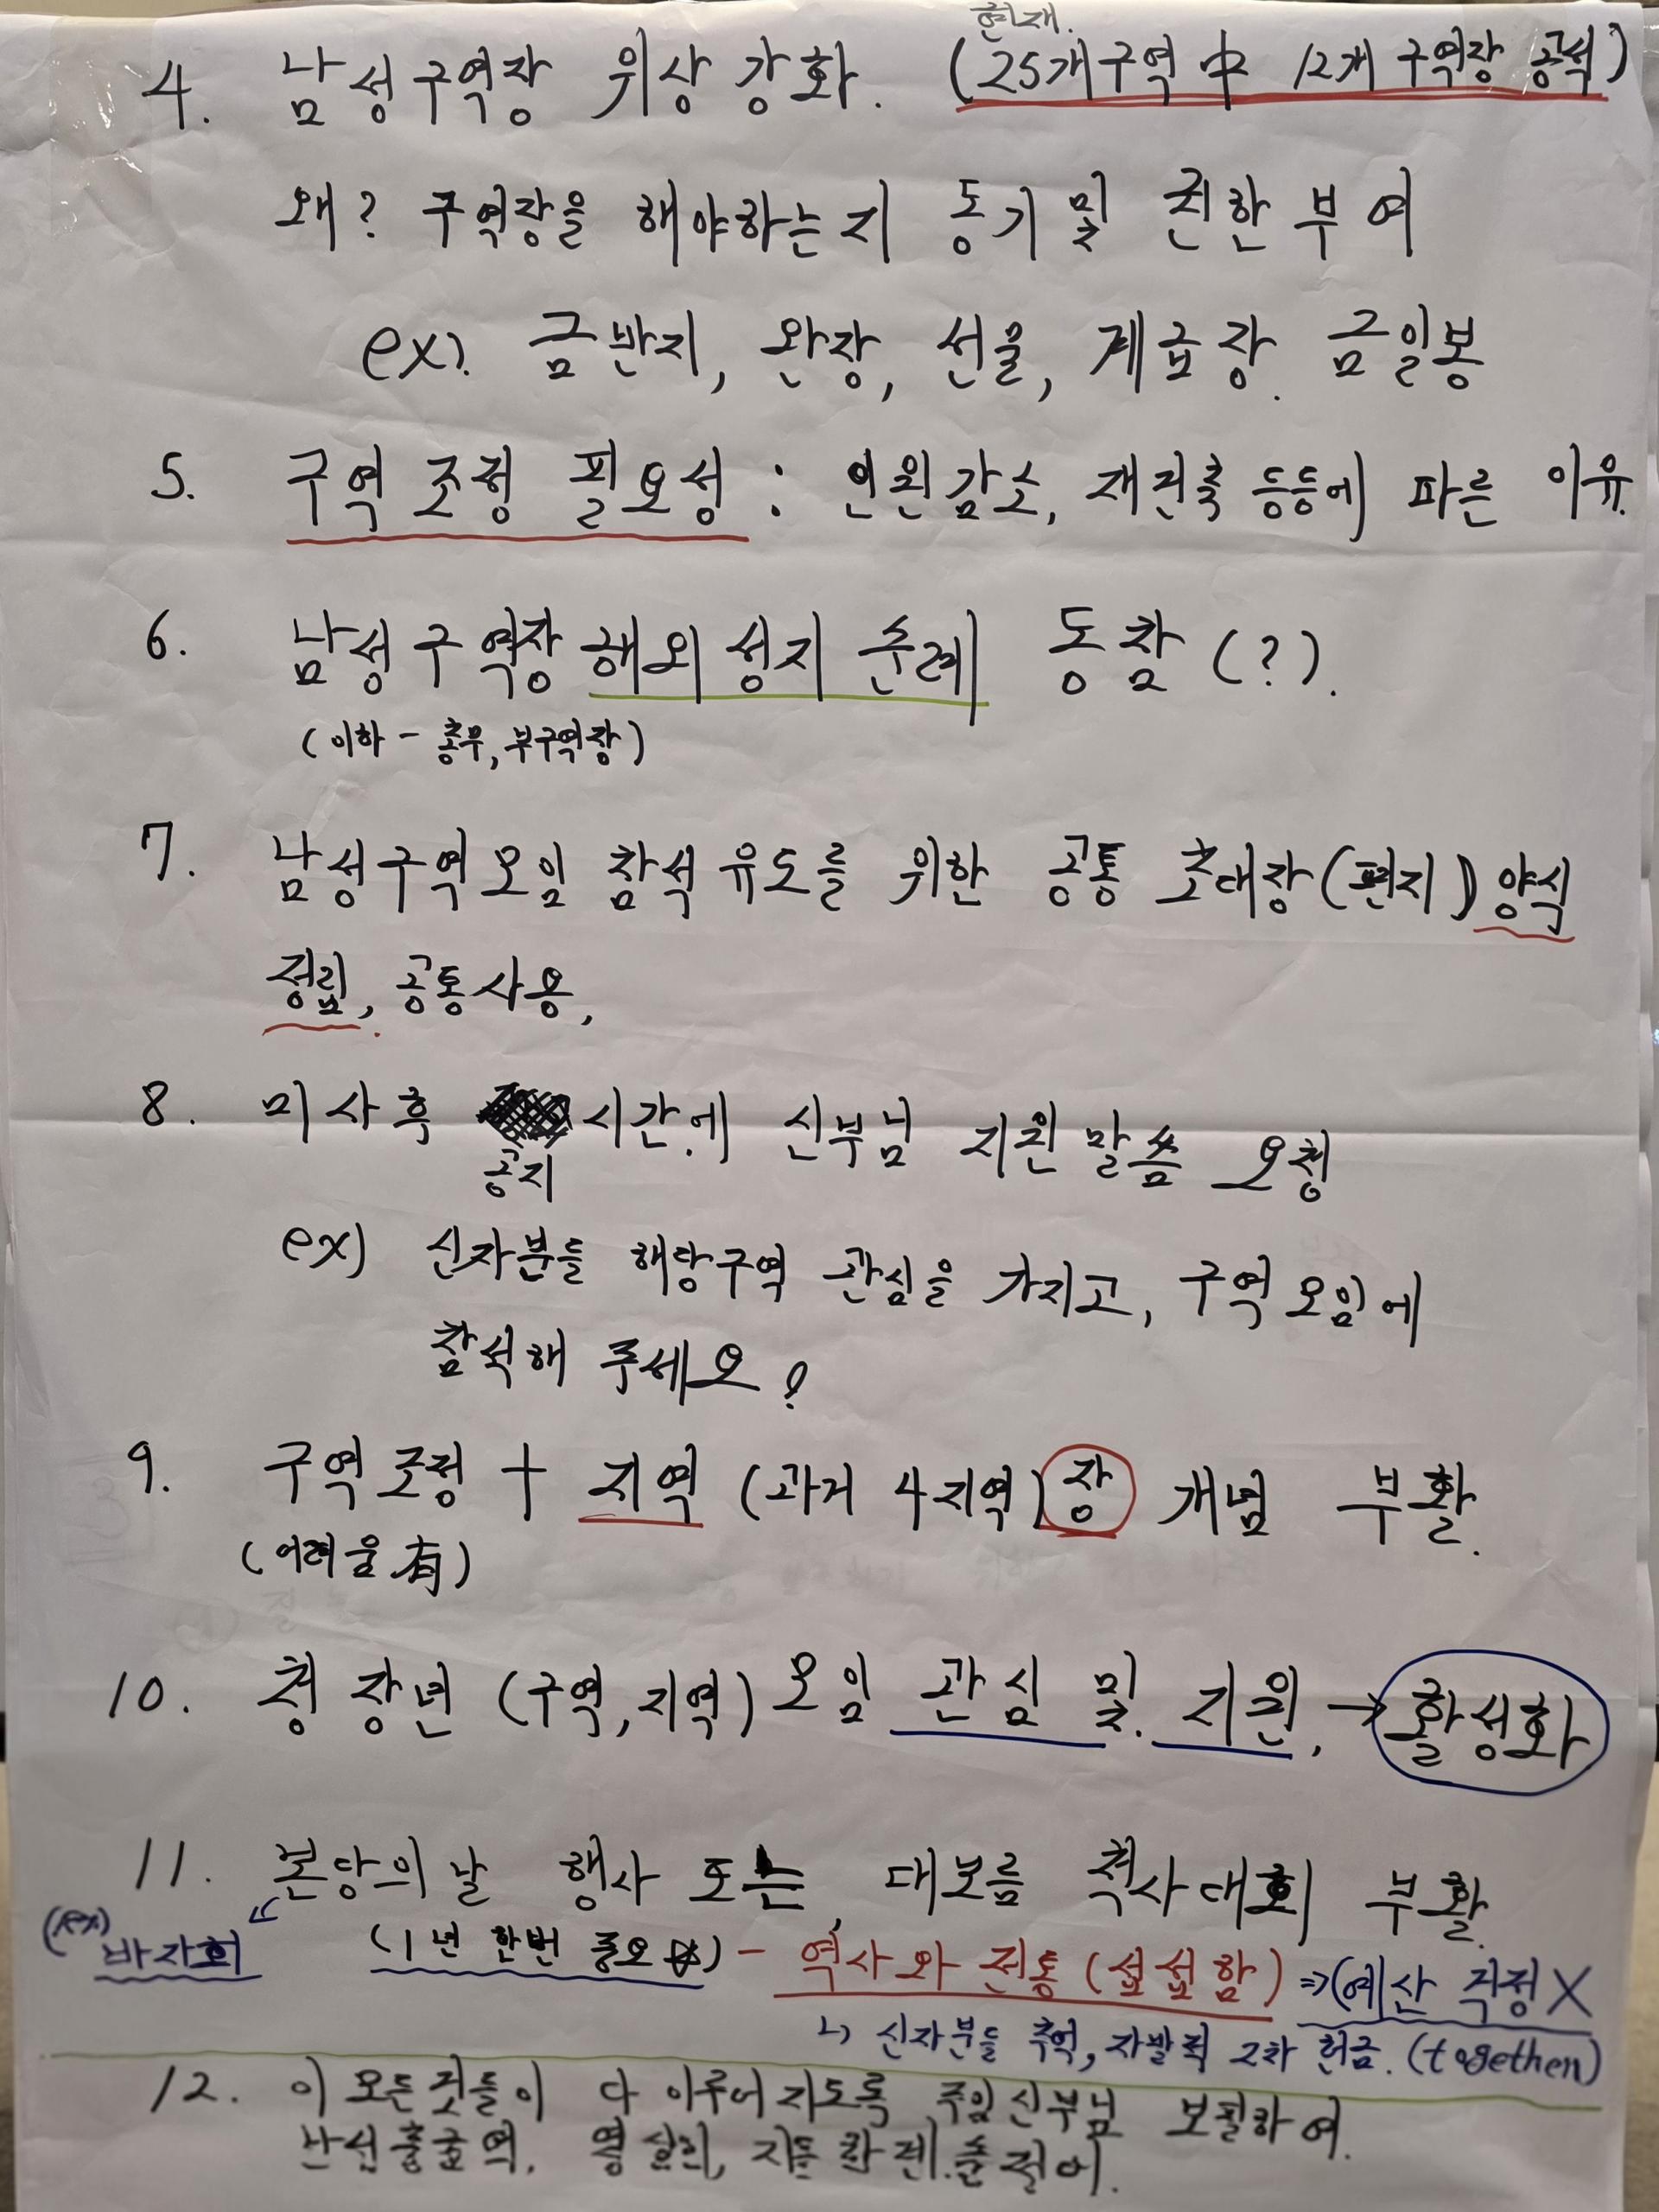 현재.
4. 남성구역장 위상 강화. (25개구역 中 12개 구역장 공석)
왜? 구역장을 해야하는지 동기 및 권한 부여
ex). 금반지, 완장, 선물, 계급장. 금일봉
5. 구역 조정 필요성 : 인원감소, 재건축 등등에 따른 이유.
6. 남성구역장 해외 성지 순례 동참 (?).
(이하 - 총무, 부구역장)
7. 남성구역모임 참석 유도를 위한 공통 초대장(편지) 양식
정립, 공통사용,
8. 미사후 시간에 신부님 지원 말씀 요청
공지
ex) 신자분들 해당구역 관심을 가지고, 구역모임에
참석해 주세요?
9. 구역조정 + 지역 (과거 4지역)장 개념 부활.
(어려움 有)
10. 청장년 (구역, 지역) 모임 관심 및 지원, → 활성화
11. 본당의날 행사 또는 대보름 척사대회 부활.
(ex) 바자회 (1년 한번 중요) - 역사와 전통 (섭섭함) ⇒ (예산 걱정X
↳ 신자분들 추억, 자발적 2차 헌금. (together)
12. 이 모든것들이 다 이루어지도록 주임신부님 보필하여.
남성총구역. 영상회, 자동